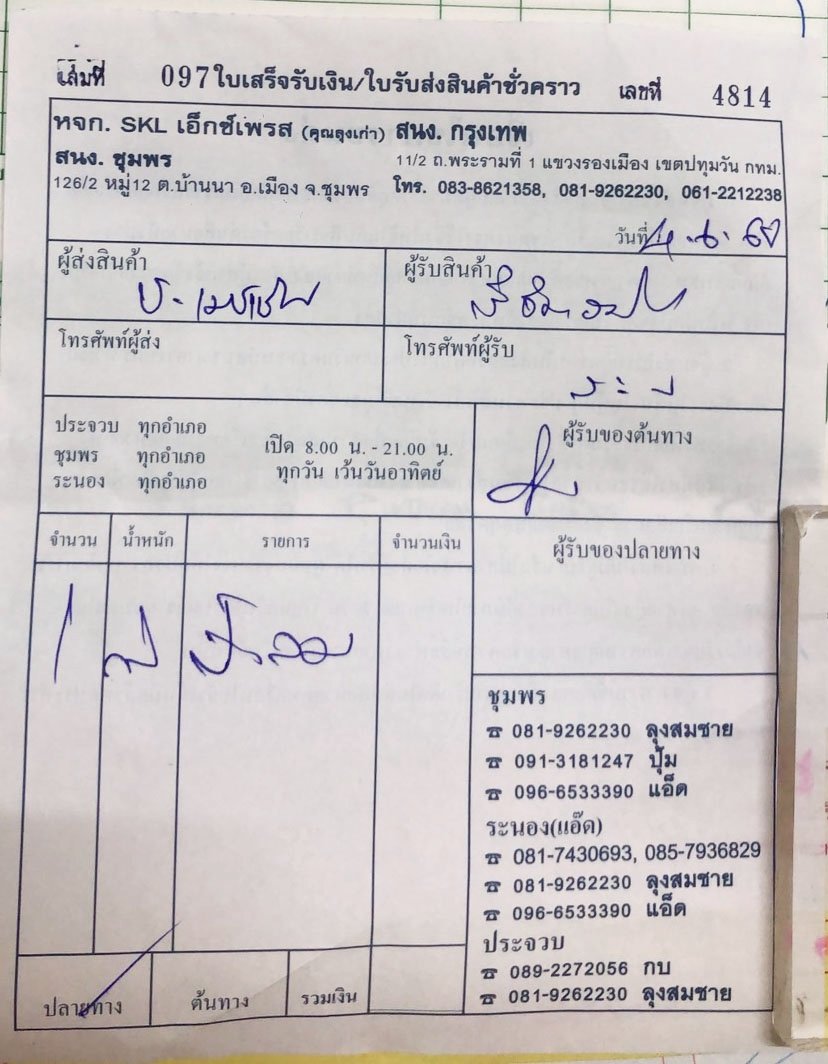 เล่มที่ 097 ใบเสร็จรับเงิน/ใบรับส่งสินค้าชั่วคราว เลขที่ 4814
หจก. SKL เอ็กซ์เพรส (คุณลุงเก่า) สนง. กรุงเทพ
สนง. ชุมพร 11/2 ถ.พระรามที่ 1 แขวงรองเมือง เขตปทุมวัน กทม.
126/2 หมู่12 ต.บ้านนา อ.เมือง จ.ชุมพร โทร. 083-8621358, 081-9262230, 061-2212238
วันที่
ผู้ส่งสินค้า ผู้รับสินค้า
โทรศัพท์ผู้ส่ง โทรศัพท์ผู้รับ
ประจวบ ทุกอำเภอ
ชุมพร ทุกอำเภอ
ระนอง ทุกอำเภอ
เปิด 8.00 น. - 21.00 น.
ทุกวัน เว้นวันอาทิตย์
ผู้รับของต้นทาง
จำนวน น้ำหนัก รายการ จำนวนเงิน
ผู้รับของปลายทาง
1
ชุมพร
☎ 081-9262230 ลุงสมชาย
☎ 091-3181247 ปุ้ม
☎ 096-6533390 แอ็ด
ระนอง(แอ๊ด)
☎ 081-7430693, 085-7936829
☎ 081-9262230 ลุงสมชาย
☎ 096-6533390 แอ็ด
ประจวบ
☎ 089-2272056 กบ
☎ 081-9262230 ลุงสมชาย
ปลายทาง ต้นทาง รวมเงิน